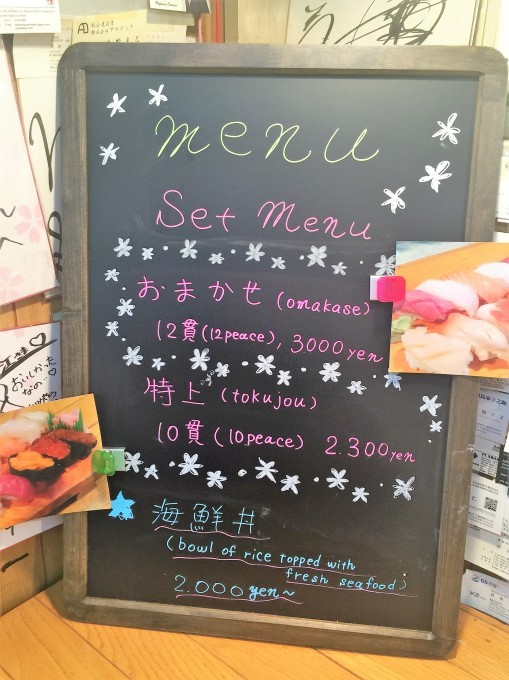 menu
Set Menu
おまかせ (omakase)
12貫(12peace), 3.000yen
特上 (tokujou)
10貫(10peace) 2.300yen
海鮮丼
(bowl of rice topped with
fresh seafood)
2.000yen~
おいしかった
なの